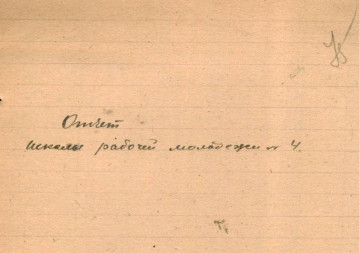 Отчет
школы рабочей молодежи № 4.